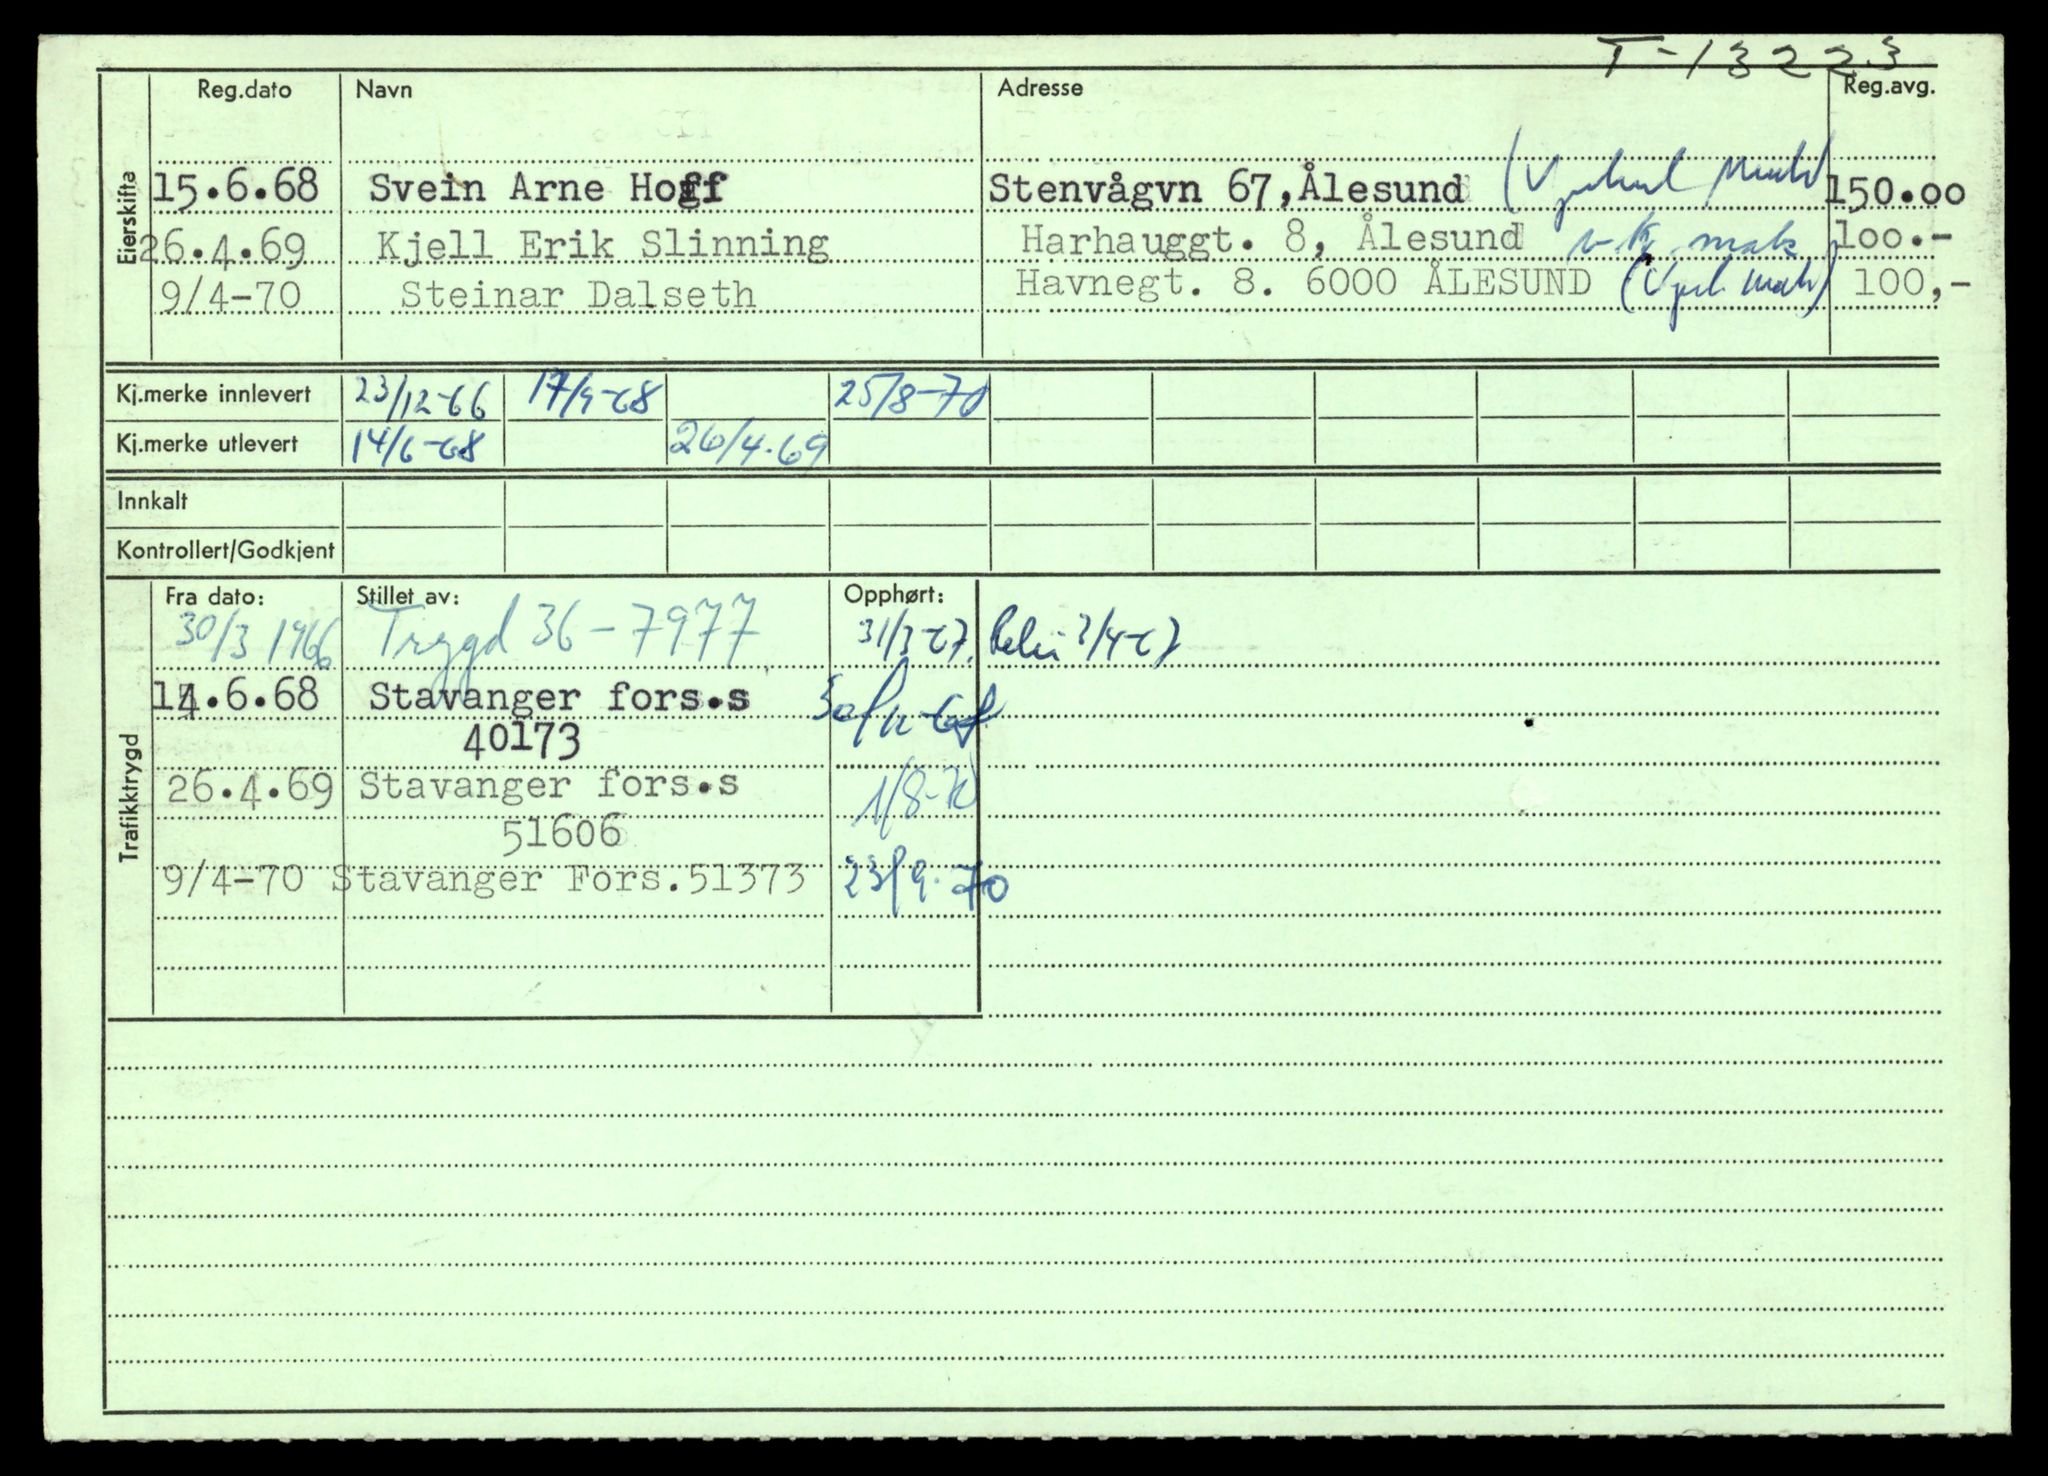 T-13223
Reg.dato Navn Adresse Reg.avg.
Eierskifte
15.6.68 Svein Arne Hoff Stenvågvn 67, Ålesund 150.00
26.4.69 Kjell Erik Slinning Harhauggt. 8, Ålesund 100.-
9/4-70 Steinar Dalseth Havnegt. 8. 6000 ÅLESUND 100,-
Kj.merke innlevert 23/12-66 17/9-68 25/8-70
Kj.merke utlevert 14/6-68 26/4.69
Innkalt
Kontrollert/Godkjent
Trafikktrygd
Fra dato: Stillet av: Opphørt:
30/3 1966 Trygd 36-7977
14.6.68 Stavanger fors.s
40173
26.4.69 Stavanger fors.s 1/8-70
51606
9/4-70 Stavanger Fors.51373 23/9-70